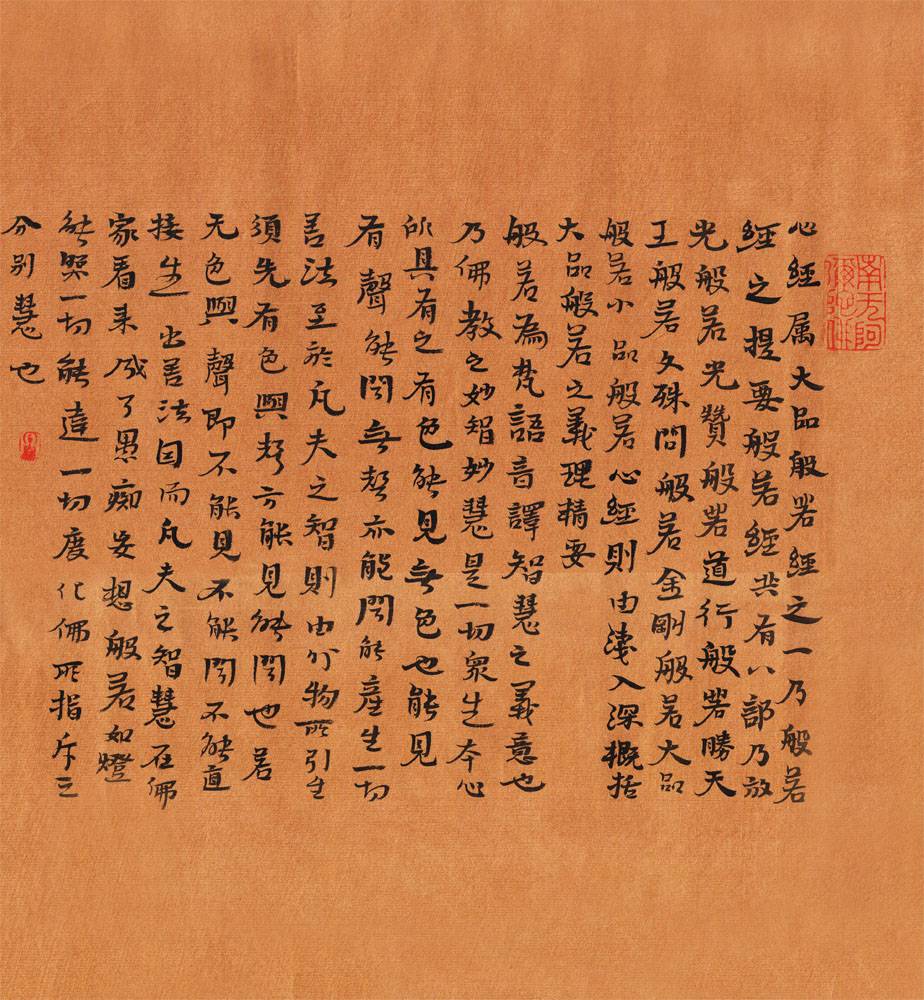 南无阿彌陀佛
心經属大品般若經之一乃般若
經之提要般若經共有八部乃放
光般若光贊般若道行般若勝天
王般若文殊問般若金剛般若大品
般若小品般若心經則由淺入深概括
大品般若之義理精要
般若為梵語音譯智慧之義意也
乃佛教之妙智妙慧是一切眾生本心
所具有之有色能見無色也能見
有聲能聞無聲亦能聞能產生一切
善法至於凡夫之智則由外物所引生
須先有色與聲方能見能聞也若
无色與聲即不能見不能聞不能直
接生出善法因而凡夫之智慧在佛
家看来成了愚痴妄想般若如燈
能照一切能達一切度化佛所指斥之
分别慧也